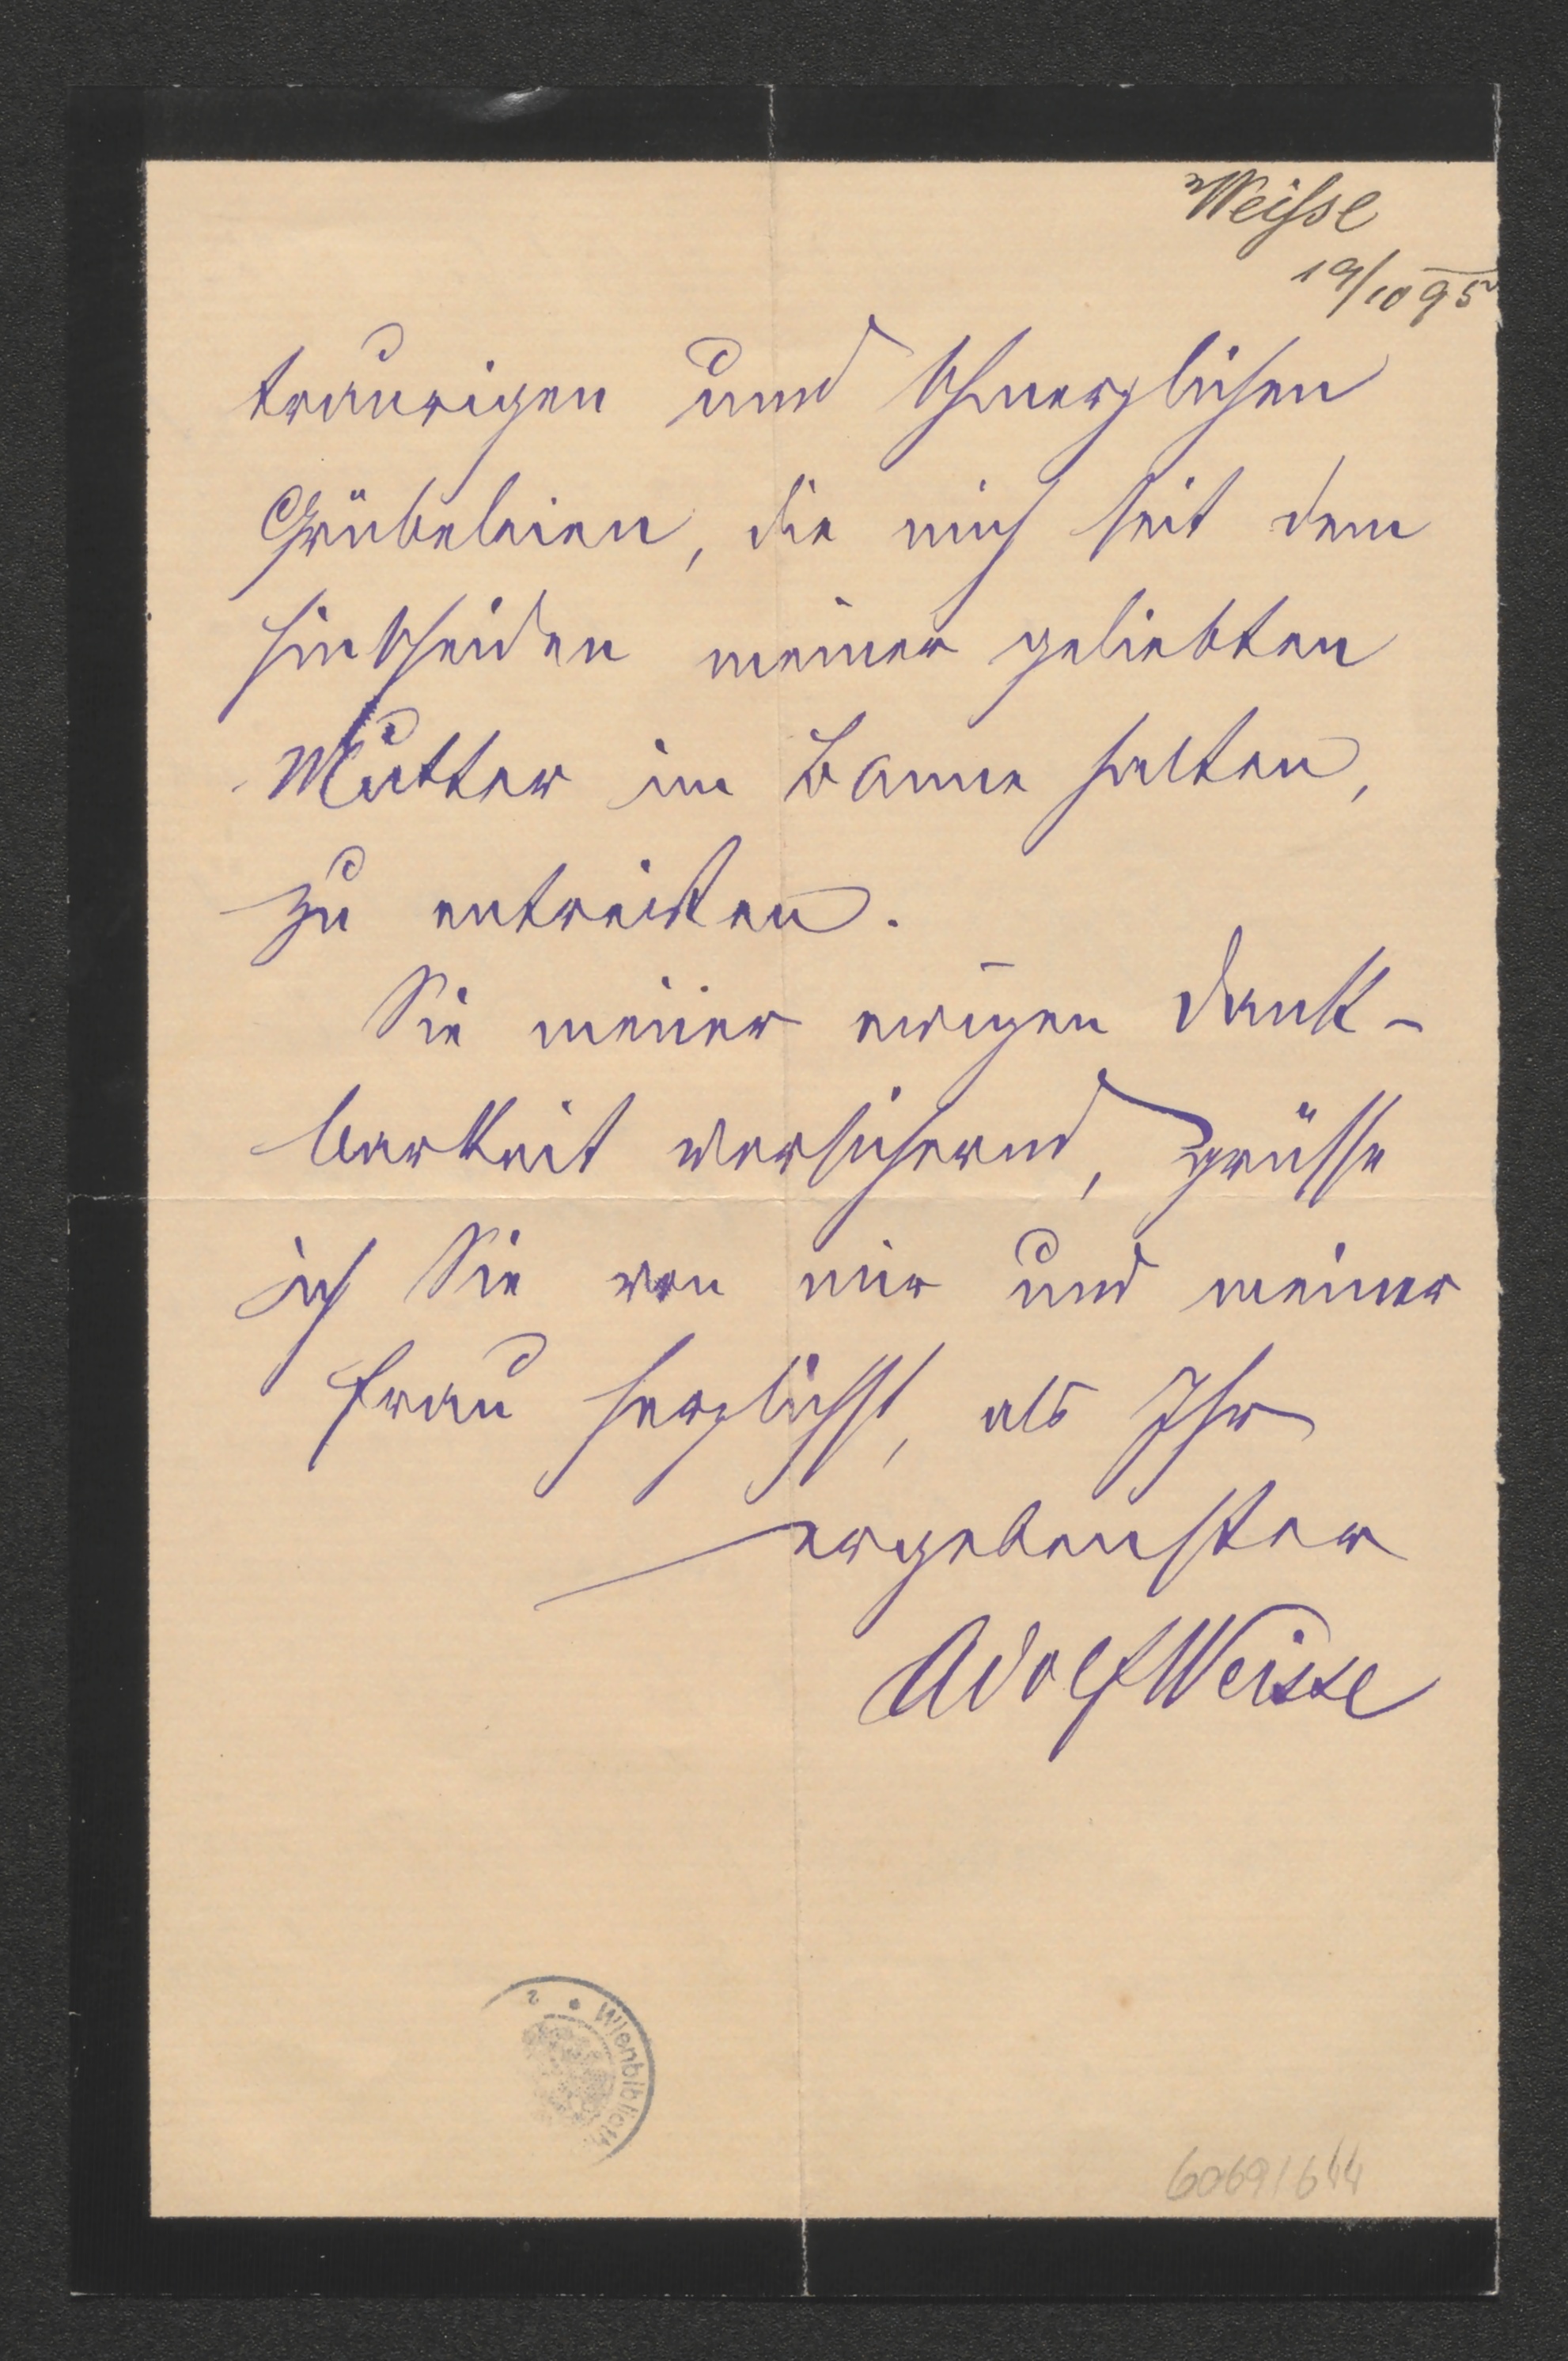 Weisse
19/10 95
traurigen und schmerzlichen
Grübeleien, die mich seit dem
Hinscheiden meiner geliebten
Mutter im Banne halten,
zu entreißen.
Sie meiner ewigen Dank-
barkeit versichernd, grüsse
ich Sie von mir und meiner
Frau herzlichst, als Ihr
ergebenster
Adolf Weisse
2 • Wienbiblioth
60691644